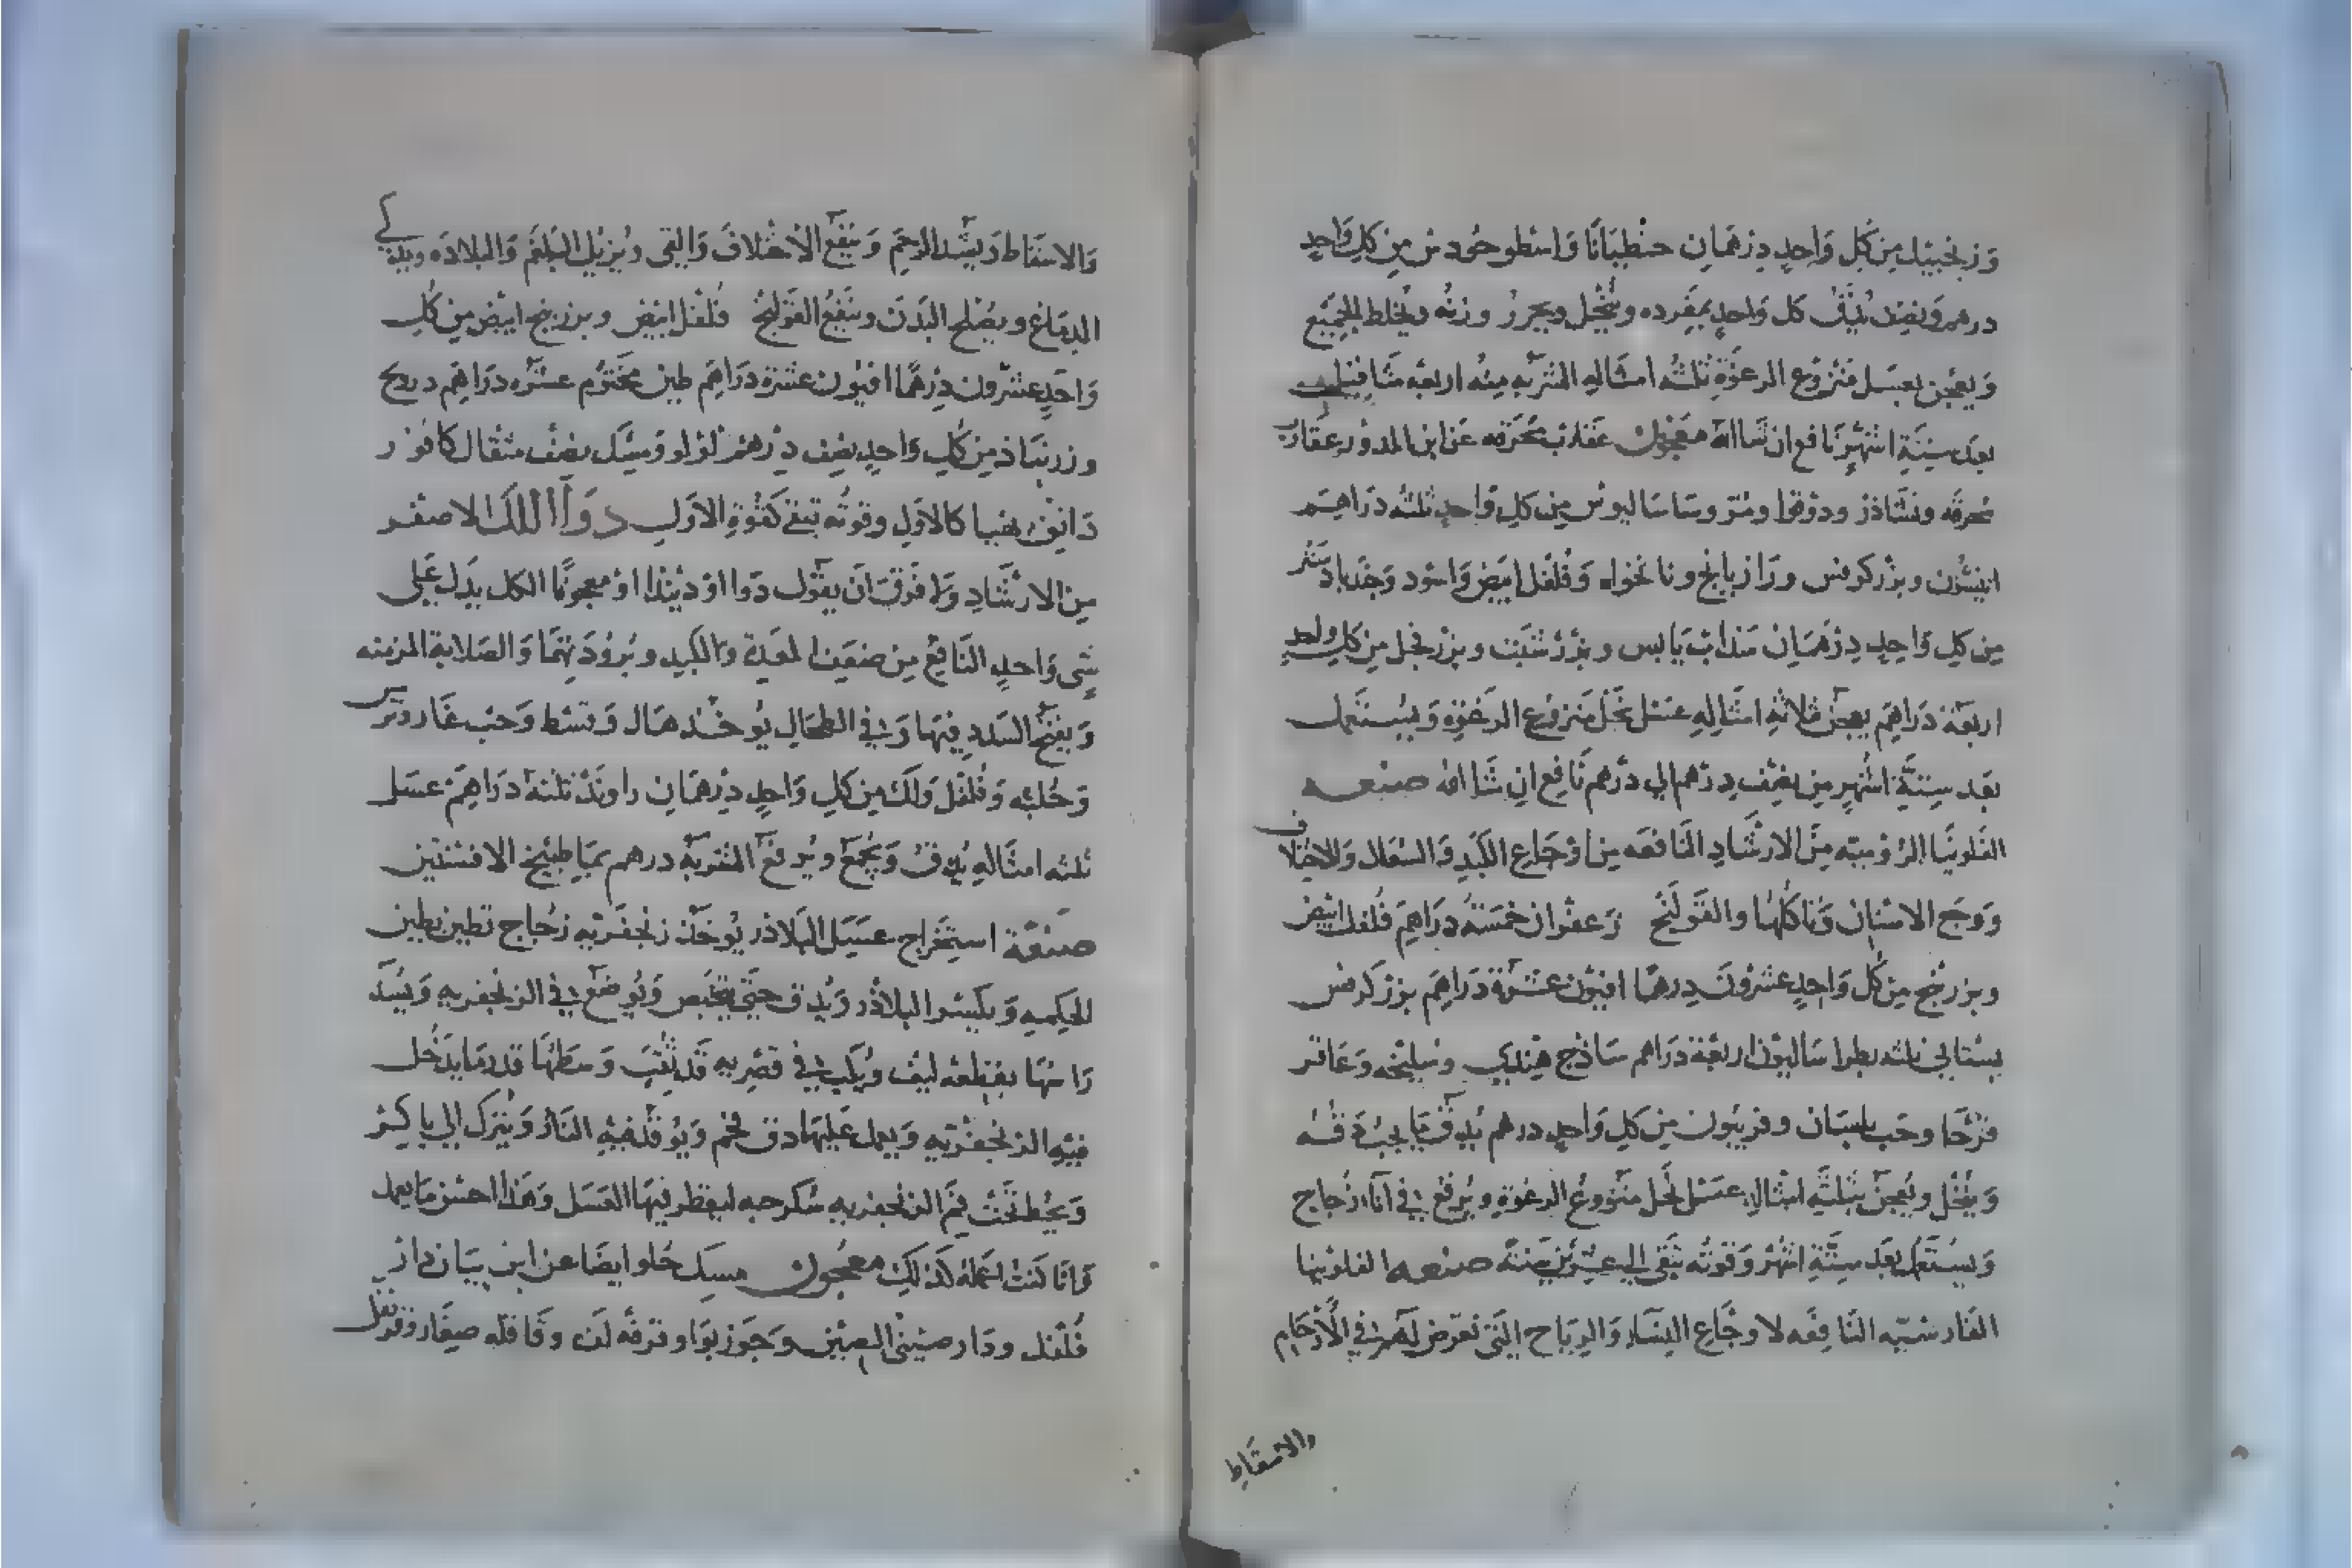 وَزنجبيل من كل وَاحدٍ درهمَان جنطيَانا وَاسطوخودس من كل وَاحدٍ
درهم وَنصف يُدَقُّ كل وَاحدٍ بمفرده ويُنخل ويحرر وزنه ويخلط الجميع
وَيعجن بعسَل منزوع الرغوَةِ ثلثه امثالهِ الشربه منه اربعه مثاقيل
بعد ستةِ اشهرٍ نافع ان شا الله معجون عقارب محرَقه عن ابن المدور عقارب
محرقه ودوقوا ومُر وساساليوس من كل وَاحدٍ ثلثه درَاهم
انيسُون وبزر كرفس ورَازيانج ونانخواه وَفُلفل ابيض وَاسود وَجندبادستر
من كل وَاحدٍ درهمَان سَذاب يَابس وبزر شبَت وبزر فجل من كل واحدٍ
اربعَة درَاهِم يعجن بثلاثةِ امثالهِ عسَل نحل منزوع الرغوَةِ وَيُستعمل
بعد ستةِ اشهرٍ من نصف درهم الي درهم نافع ان شا الله صنعه
الفلونيَا الرُوميّه من الارشَادِ النافعَه من اوجَاع الكبدِ وَالسعَال وَالاختلاف
وَوجَع الاسنان وَتاكلهَا والقولنج زعفران خمسَة درَاهِم فُلفل ابيض
وبزر بنج من كل وَاحدٍ عشرون درهمًا افيون عشرَة درَاهِم بزر كرفس
بستاني ثلثه بطراساليون اربعَة درَاهم سَاذج هندي وسليخه وَعَاقر
قرحَا وحَب بلسَان وفربيون من كل وَاحدٍ درهم يدق مَا يجب دَقُه
وَينخل ويُعجن بثلثَةِ امثاله عسَل نحل منزوع الرغوَةِ ويُرفع في انا زجاج
وَيُستعمل بعد ستةِ اشهر وَقوتُه تبقى الي عشرين سَنة صنعه الفلونيا
الفارسيّه النافِعَه لاوجَاع النسَاءِ وَالريَاح التى تعرض لهن في الاَرحَام
والاسقَاط
وَالاسقَاط وَيشد الرحِم وَينفع الاختلافَ وَالقى ويُزيل البلغَم وَالبلادَه ويذكي
الدمَاغ ويصلح البدَن وينفعُ القولنج فُلفل ابيض وبزر بنج ابيض من كل
وَاحدٍ عشرون درهمًا افيون عشرَة درَاهِم طين مختوم عشرَه درَاهِم درونج
وزرنبَاذ من كل وَاحدٍ نصف درهم لولو وَمسك نصف مثقال كافور
دَانق يهيا كالاوَل وقوتُه تبقى كقوةِ الاوَل دَوَا اللك الاصغر
من الارشَادِ وَلا فَرق ان يقول دَوا اوْ معجونًا الكل يدل عَلي
شى وَاحدٍ النَافع من ضعف المعدةِ وَالكبد وبُرودَتهمَا وَالصَلابة المزمنه
وَيفتح السّدد فيهَا وَفي الطحَال يُوخذ هَال وَقسط وَحب غَار وتُرمس
وَحُلبه وَفُلفل وَلك من كل وَاحدٍ درهمَان راونْد ثلثه درَاهِم عسَل
ثلثه امثاله يُدق وَيُجمع ويُرفع الشربَه درهم بمَا طبيخ الافسنتين
صَنعَة استخرَاج عسَل البلاذر يُوخذ زنجفرَيه زجَاج تطين بطين
الحكمه وَيُدق حتى وَيُوضع في الزنجفريه وَيُسَد
رَاسهَا بقطعه ليف وَيكب في قصريهٍ قد ثُقبَ وَسطهَا قدر مَا يدخل
فيهِ الزنجفريه وَيعمل عليهَا دق فحم وَيُوقد فيهِ النار وَيُترك
وَيُحط تحت فم الزنجفريه سُكرجه ليقطر فيهَا العسَل وَهَذا احسن مَا يعمل
وَانا كنت اعمله كذلك معجون مسك حُلو ايضا عن ابن بيان دار
فُلفل ودَار صيني الصين وجَوز بوَا وقرفة لف وقاقله صغَار وقرنفل